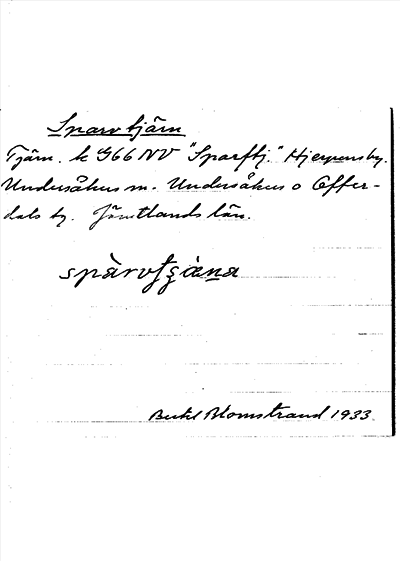 Sparvtjärn
Tjärn. k G66 NV "Sparftj." Hjerpensby.
Undersåkers sn. Undersåkers o Offer-
dals tg. Jämtlands län.
Bertil Blomstrand 1933.